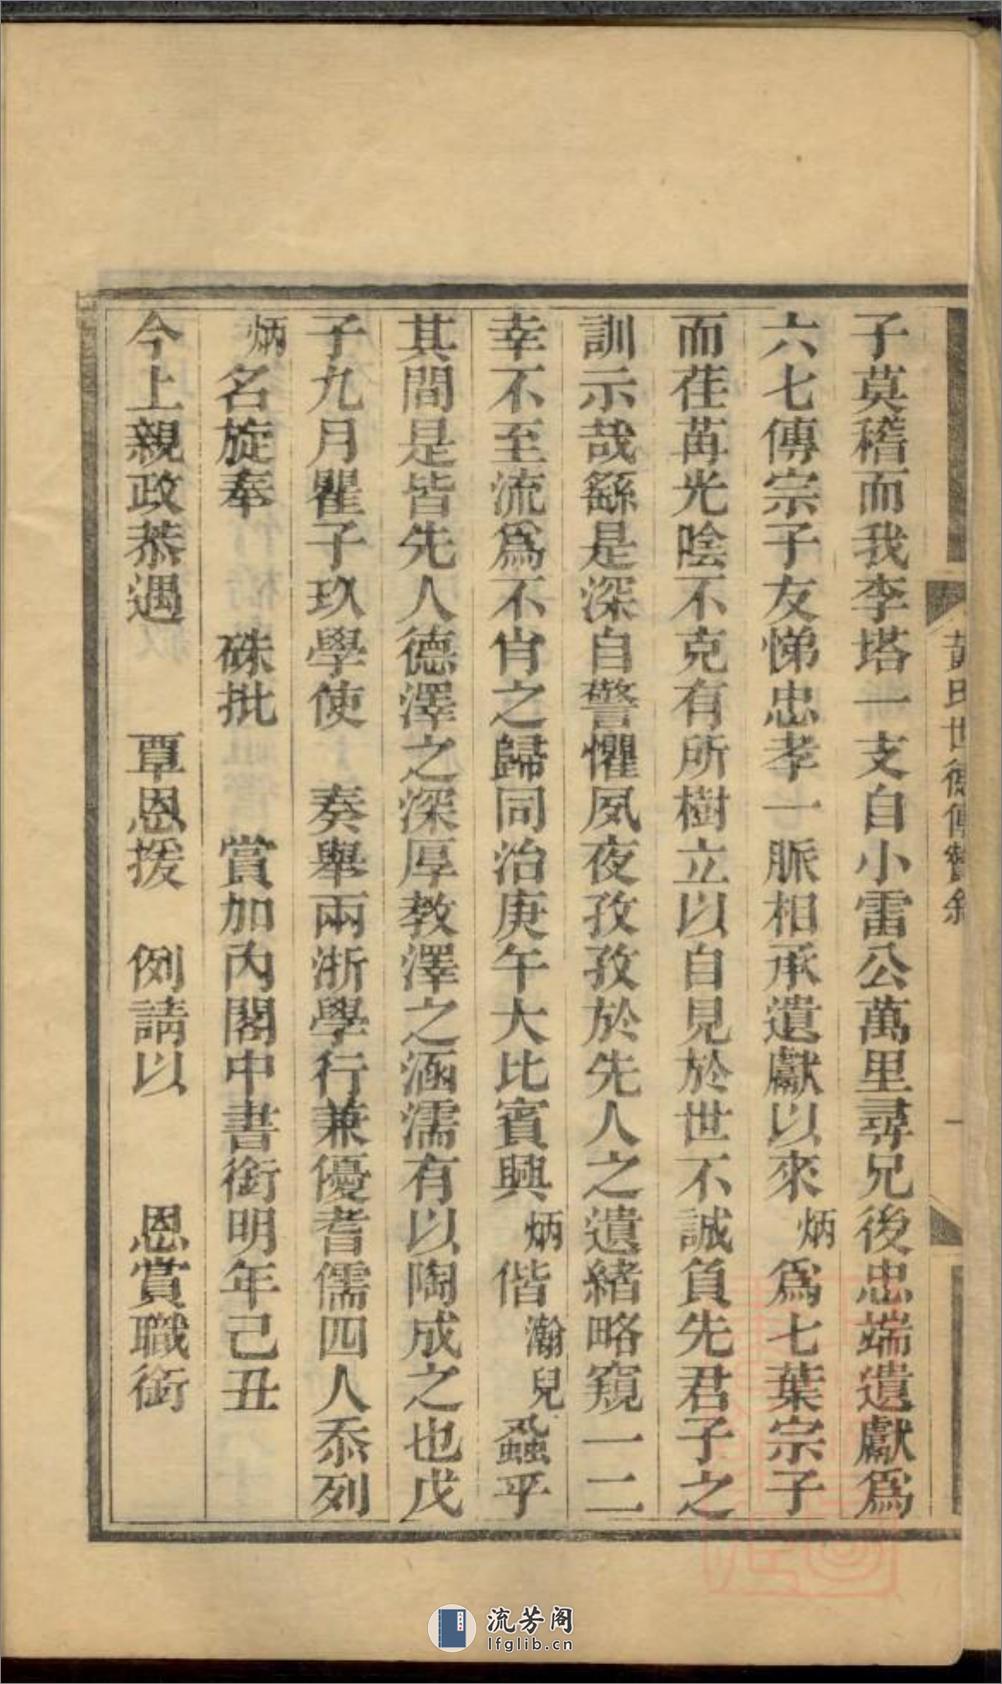 黃氏世德傳贊敘
一
子莫稽而我李塔一支自小雷公萬里尋兄後忠端遺獻爲
六七傳宗子友悌忠孝一脈相承遺獻以來炳爲七葉宗子
而荏苒光陰不克有所樹立以自見於世不誠負先君子之
訓示哉繇是深自警懼夙夜孜孜於先人之遺緒略窺一二
幸不至流爲不肖之歸同治庚午大比賓興炳偕瀚兒蝨乎
其間是皆先人德澤之深厚教澤之涵濡有以陶成之也戊
子九月瞿子玖學使 奏舉兩浙學行兼優耆儒四人忝列
炳名旋奉 硃批 賞加內閣中書銜明年己丑
今上親政恭遇 覃恩援 例請以 恩賞職銜
流芳阁
lfglib.cn